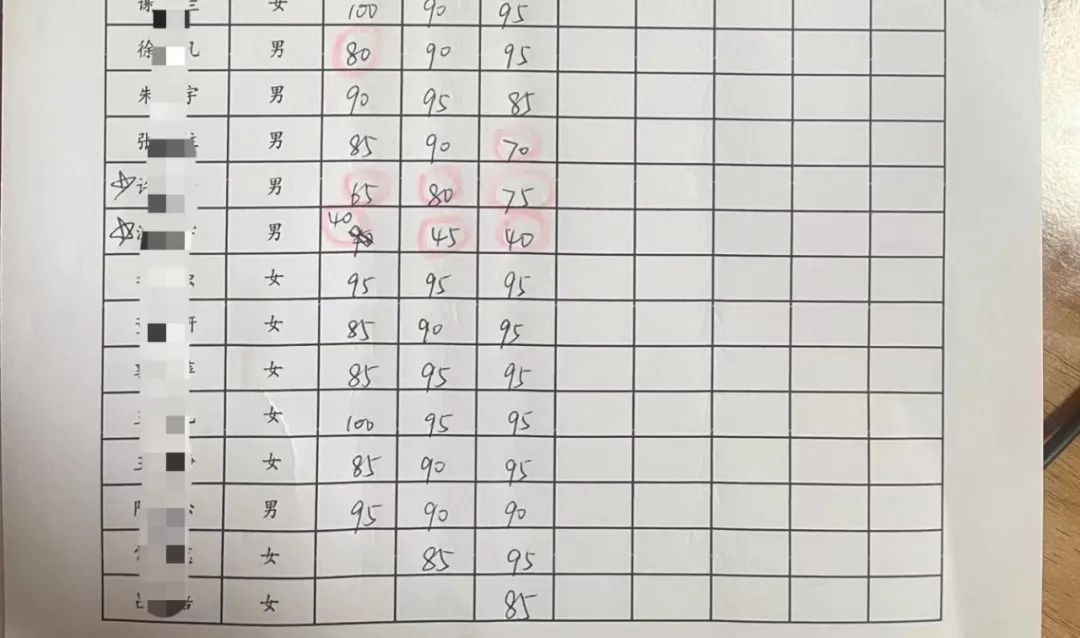 谢 女 100 90 95
徐 凡 男 80 90 95
朱 宇 男 90 95 85
张 男 85 90 70
☆ 许 男 65 80 75
☆ 男 40 45 40
女 95 95 95
女 85 90 95
女 85 95 95
王 女 100 95 95
王 女 85 90 95
男 95 90 90
女 85 95
女 85